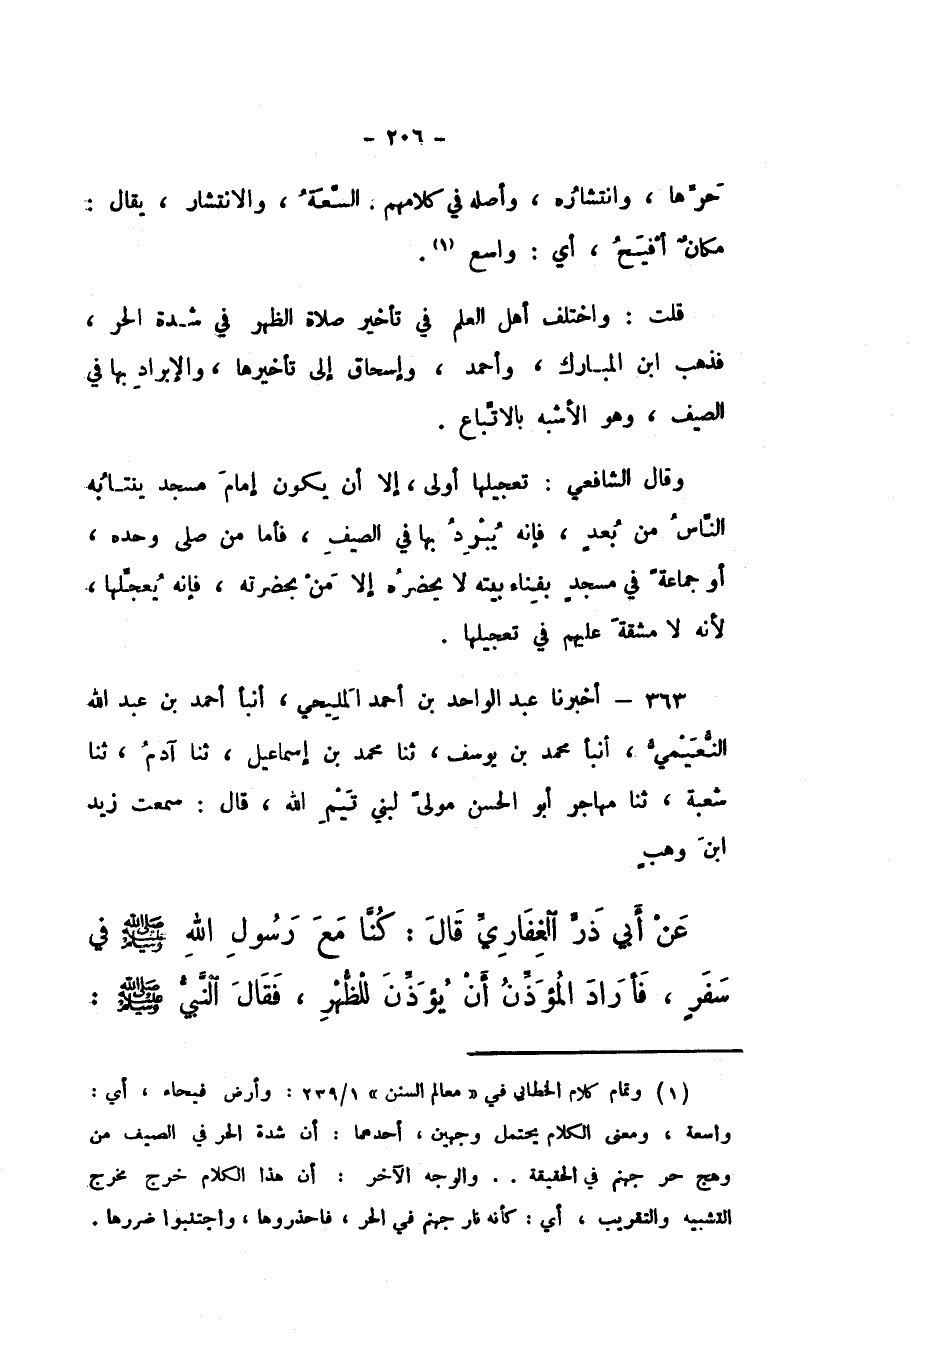 - ٢٠٦ -
حرُّها ، وانتشارُه ، وأصله في كلامهم . السَّعَةُ ، والانتشار ، يقال :
مكانٌ أفْيَحُ ، أي : واسع (١) .
قلت : واختلف أهل العلم في تأخير صلاة الظهر في شدة الحر ،
فذهب ابن المبارك ، وأحمد ، وإسحاق إلى تأخيرها ، والإبرادِ بها في
الصيف ، وهو الأشبه بالاتِّباع .
وقال الشافعي : تعجيلها أولى ، إلا أن يكون إمامَ مسجد ينتابُه
النَّاسُ من بُعدٍ ، فإنه يُبْرِدُ بها في الصيفِ ، فأما من صلى وحده ،
أو جماعةً في مسجدٍ بفِناء بيته لا يحضرُه إلا مَنْ بحضرته ، فإنه يُعجِّلها ،
لأنه لا مشقةَ عليهم في تعجيلها .
٣٦٣ – أخبرنا عبد الواحد بن أحمد المَلِيحي ، أنبأ أحمد بن عبد الله
النُّعَيْمِيُّ ، أنبأ محمد بن يوسف ، ثنا محمد بن إسماعيل ، ثنا آدمُ ، ثنا
شعبة ، ثنا مهاجر أبو الحسن مولىً لبني تَيْمِ الله ، قال : سمعت زيد
ابنَ وهبٍ
عَنْ أَبي ذَرٍّ الْغِفَارِيِّ قَالَ : كُنَّا مَعَ رَسُولِ اللهِ ﷺ في
سَفَرٍ ، فَأَرَادَ المُؤَذِّنُ أَنْ يُؤَذِّنَ لِلْظُّهْرِ ، فَقَالَ النَّبيُّ ﷺ :
(١) وتمام كلام الخطابي في « معالم السنن » ٢٣٩/١ : وأرض فيحاء ، أي :
واسعة ، ومعنى الكلام يحتمل وجهين ، أحدهما : أن شدة الحر في الصيف من
وهج حر جهنم في الحقيقة . . والوجه الآخر : أن هذا الكلام خرج مخرج
التشبيه والتقريب ، أي : كأنه نار جهنم في الحر ، فاحذروها ، واجتنبوا ضررها .